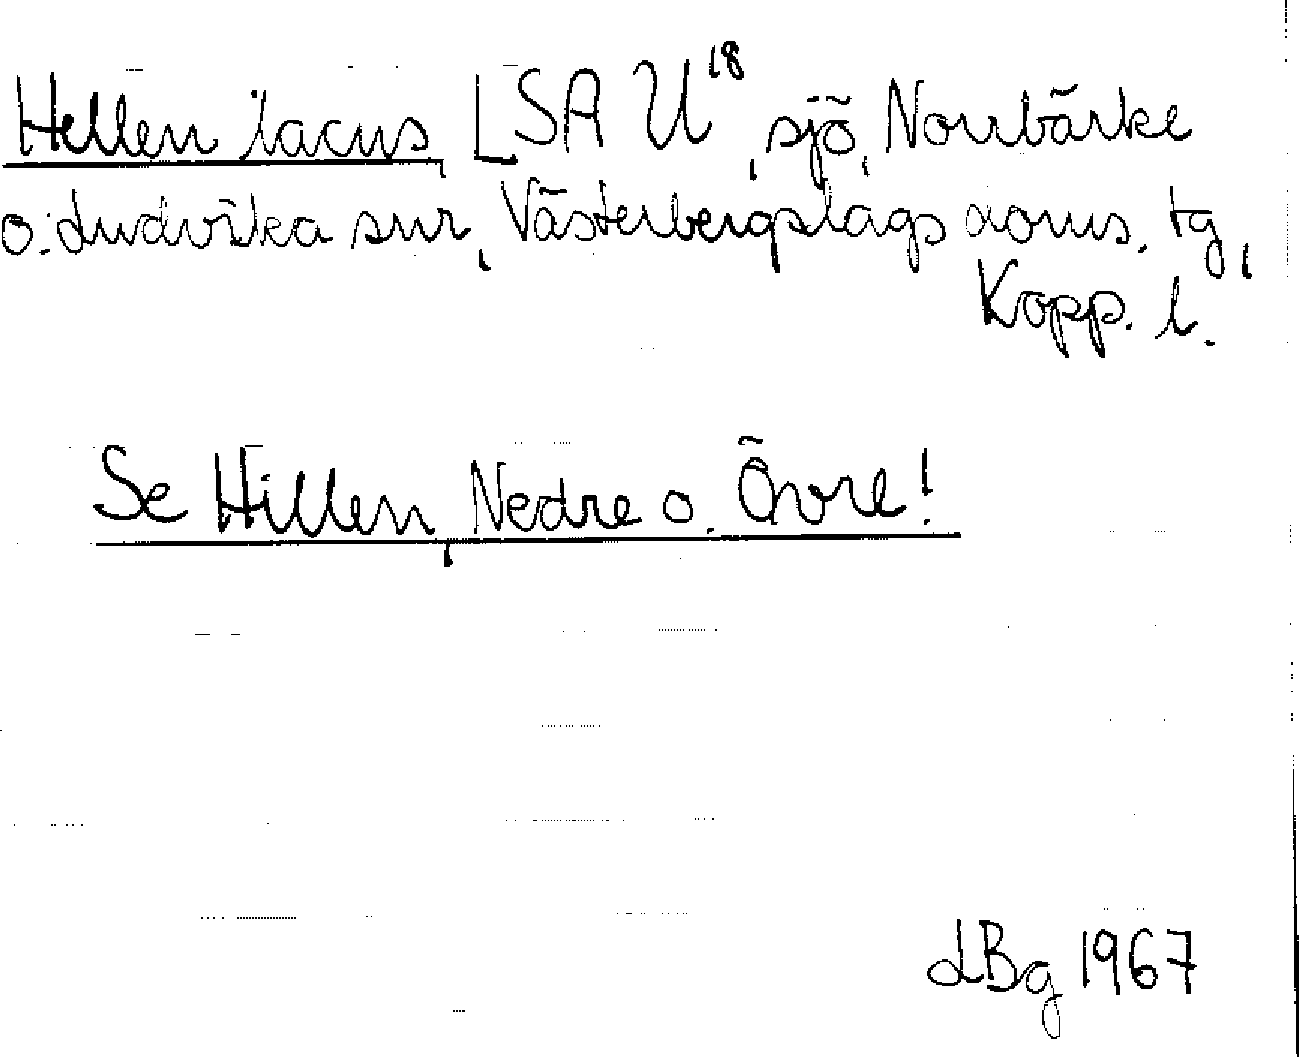 Hellen lacus, LSA U18, sjö, Norrbärke
o. Ludvika snr, Västerbergslags doms. tg,
Kopp. l.
Se Hillen, Nedre o. Övre!
LBg 1967